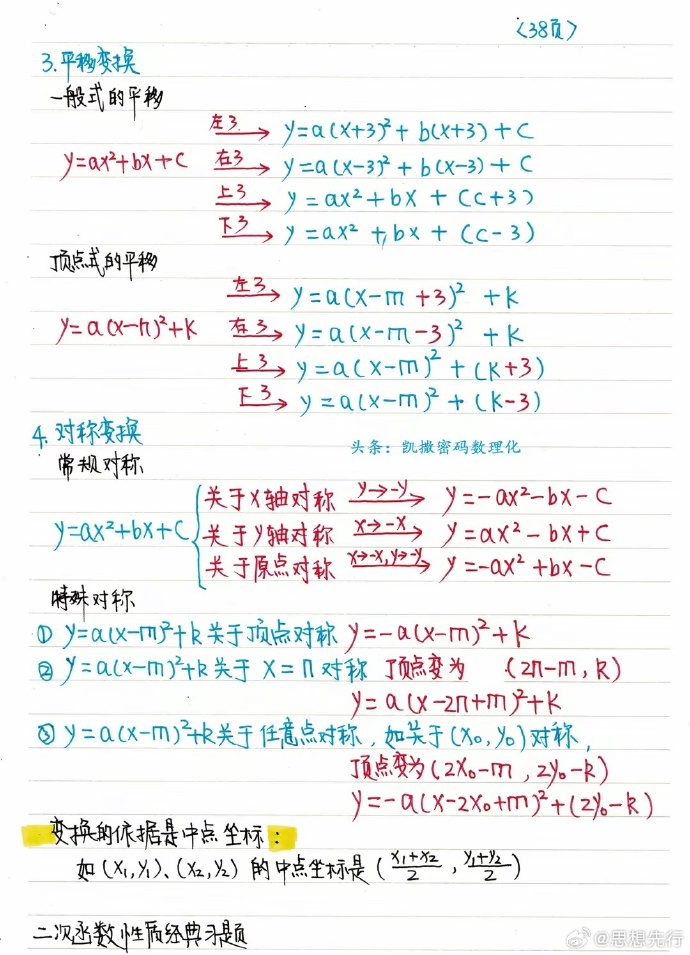 <38页>
3.平移变换
一般式的平移
左3 y=a(x+3)²+b(x+3)+c
y=ax²+bx+c 右3 y=a(x-3)²+b(x-3)+c
上3 y=ax²+bx+(c+3)
下3 y=ax²+bx+(c-3)
顶点式的平移
左3 y=a(x-m+3)²+k
y=a(x-h)²+k 右3 y=a(x-m-3)²+k
上3 y=a(x-m)²+(k+3)
下3 y=a(x-m)²+(k-3)
4.对称变换
头条：凯撒密码数理化
常规对称
关于x轴对称 y→-y y=-ax²-bx-c
y=ax²+bx+c 关于y轴对称 x→-x y=ax²-bx+c
关于原点对称 x→-x,y→-y y=-ax²+bx-c
特殊对称
① y=a(x-m)²+k关于顶点对称 y=-a(x-m)²+k
② y=a(x-m)²+k关于 x=n 对称 顶点变为 (2n-m,k)
y=a(x-2n+m)²+k
③ y=a(x-m)²+k关于任意点对称,如关于(x₀,y₀)对称,
顶点变为(2x₀-m,2y₀-k)
y=-a(x-2x₀+m)²+(2y₀-k)
变换的依据是中点坐标:
如(x₁,y₁)、(x₂,y₂)的中点坐标是((x₁+x₂)/2,(y₁+y₂)/2)
二次函数性质经典习题
@思想先行